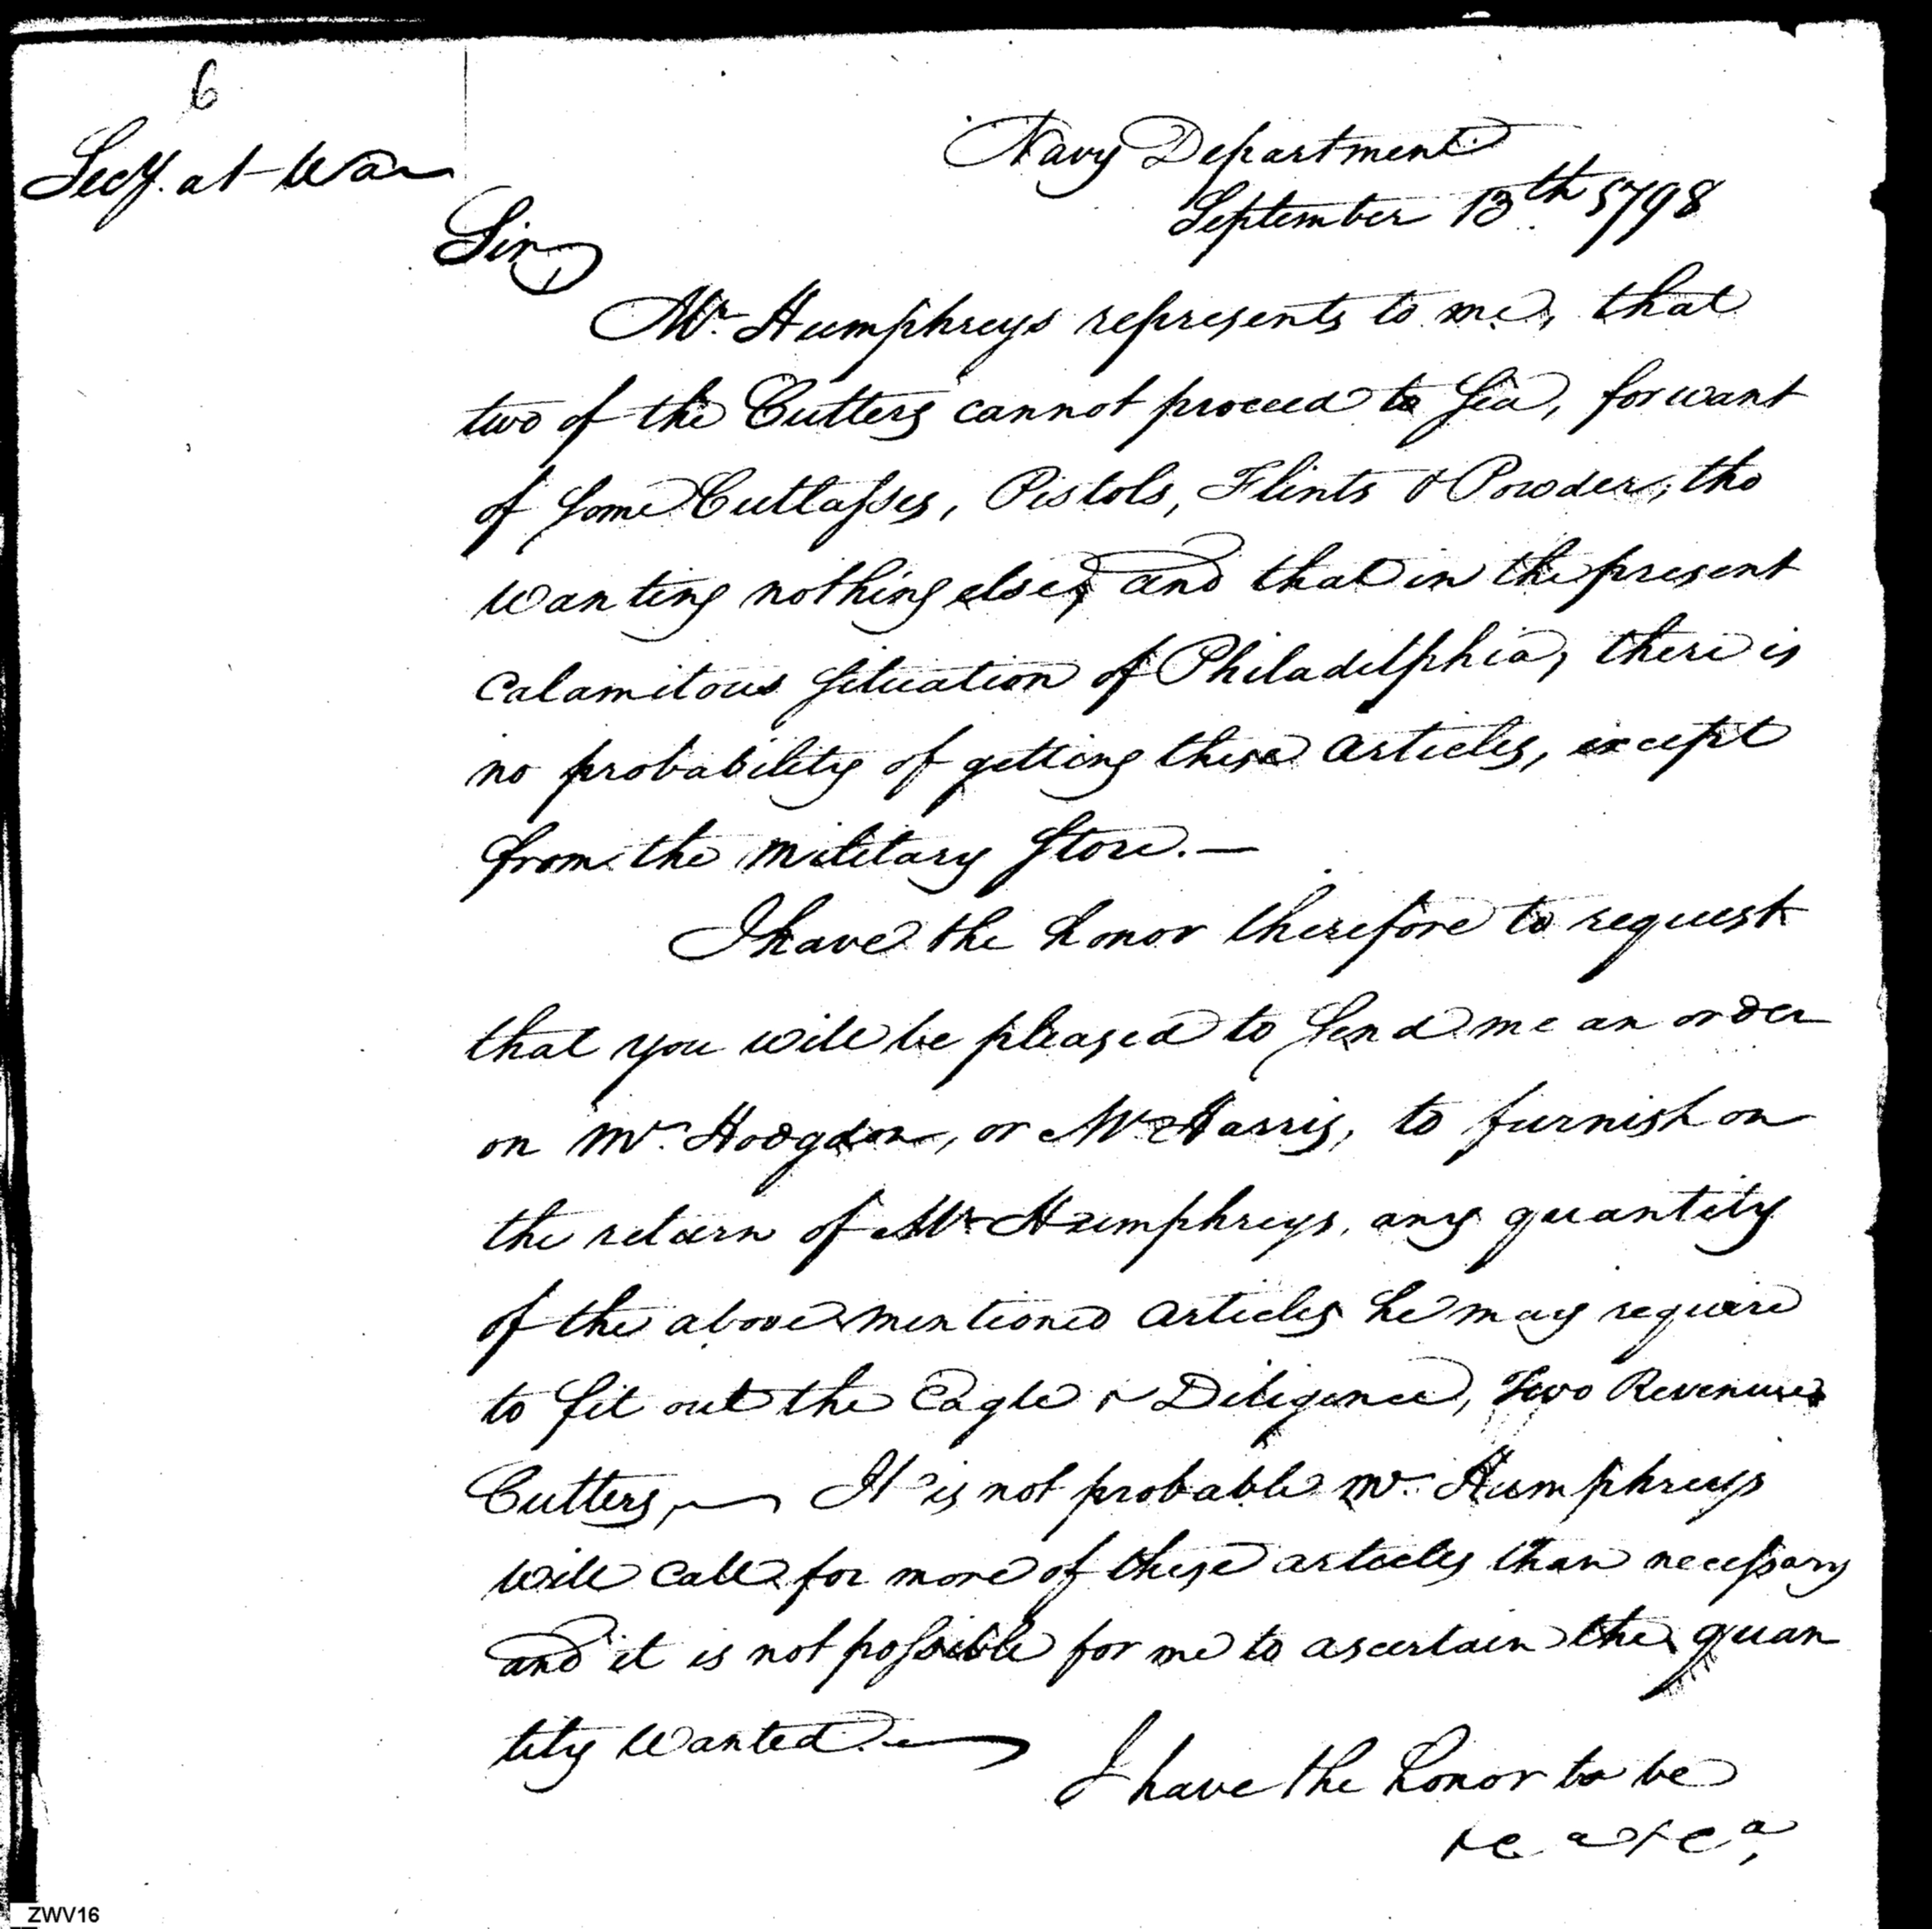 6
Secy. at War
Navy Department
September 13th 1798
Sir,
Mr. Humphreys represents to me, that
two of the Cutters cannot proceed to Sea, for want
of some Cutlasses, Pistols, Flints & Powder; tho
wanting nothing else, and that in the present
calamitous situation of Philadelphia, there is
no probability of getting these articles, except
from the military store. —
I have the honor therefore to request
that you will be pleased to send me an order
on Mr. Hodgdon, or Mr Harris, to furnish on
the return of Mr Humphreys, any quantity
of the above mentioned articles he may require
to fit out the Eagle & Diligence, Two Revenue
Cutters, — It is not probable Mr. Humphreys
will call for more of these articles than necessary
and it is not possible for me to ascertain the quan
tity wanted. —
I have the honor to be
&c a &c a,
ZWV16